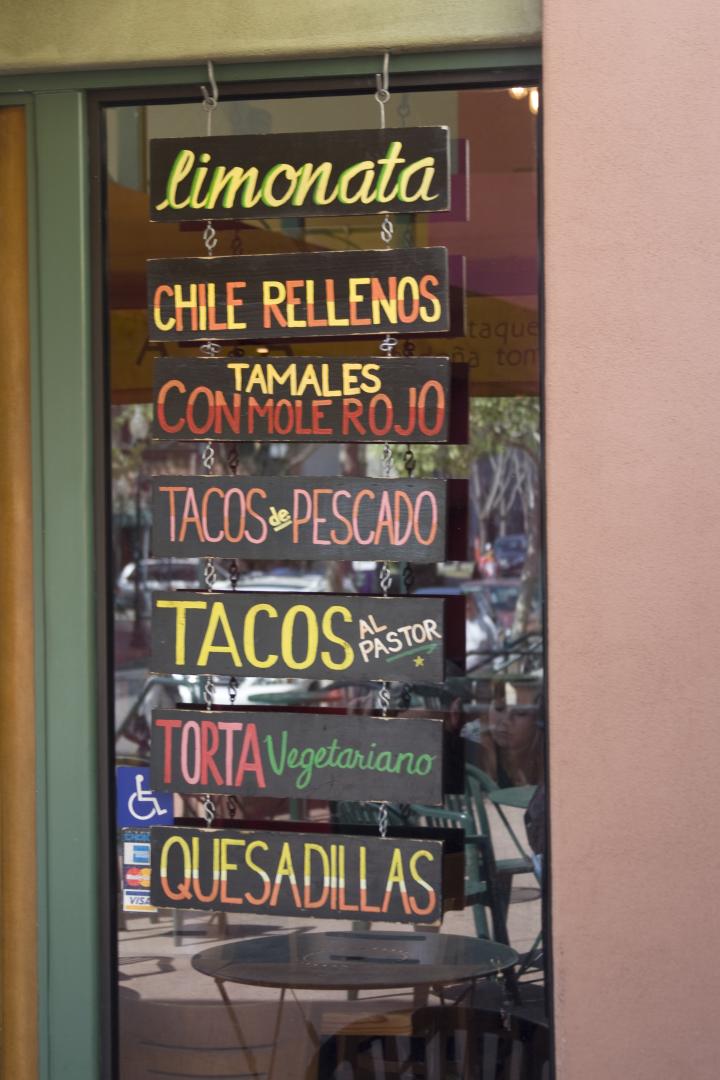 limonata
CHILE RELLENOS
TAMALES
CON MOLE ROJO
TACOS de PESCADO
TACOS AL
PASTOR
TORTA Vegetariano
QUESADILLAS
VISA